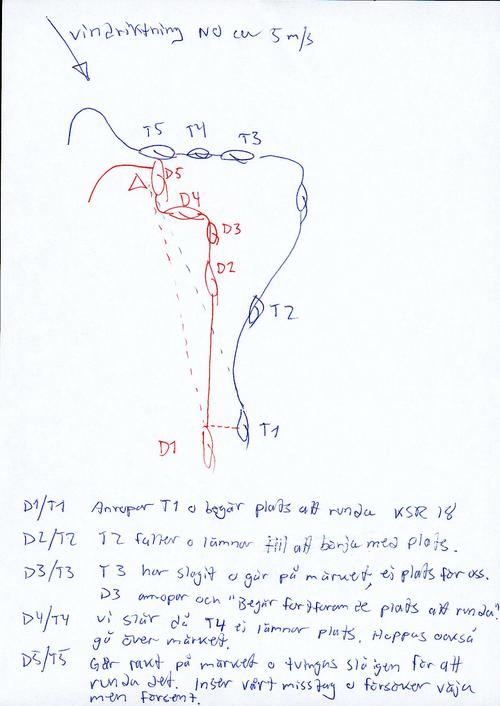 vindriktning NO ca 5 m/s
T5 T4 T3
D5
D4
D3
D2
T2
D1 T1
D1/T1 Anropar T1 o begär plats att runda KSR 18
D2/T2 T2 faller o lämnar till att börja med plats.
D3/T3 T3 har slagit o går på märket, ej plats för oss.
D3 anropar och "Begär fortfarande plats att runda"
D4/T4 vi slår då T4 ej lämnar plats. Hoppas också
gå över märket.
D5/T5 Går rakt på märket o tvingas slå igen för att
runda det. Inser vårt misstag o försöker väja
men försent.